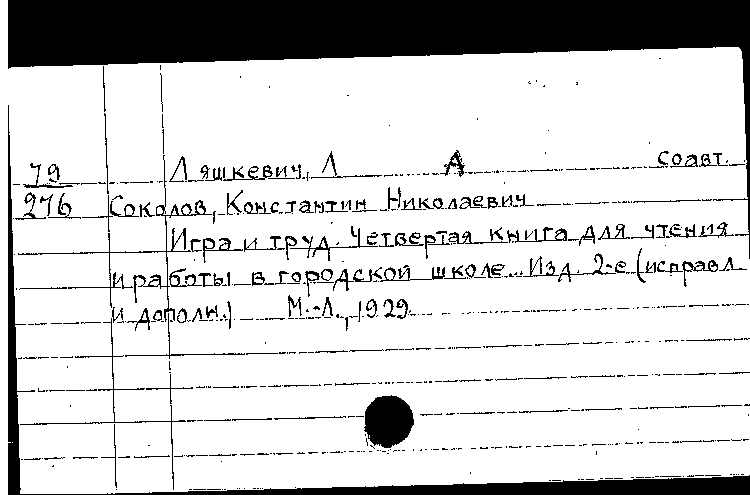 79 Ляшкевич, Л А Соавт.
276 Соколов, Константин Николаевич
Игра и труд. Четвертая книга для чтения
и работы в городской школе... Изд. 2-е (исправл.
и дополн.) М.-Л., 1929.